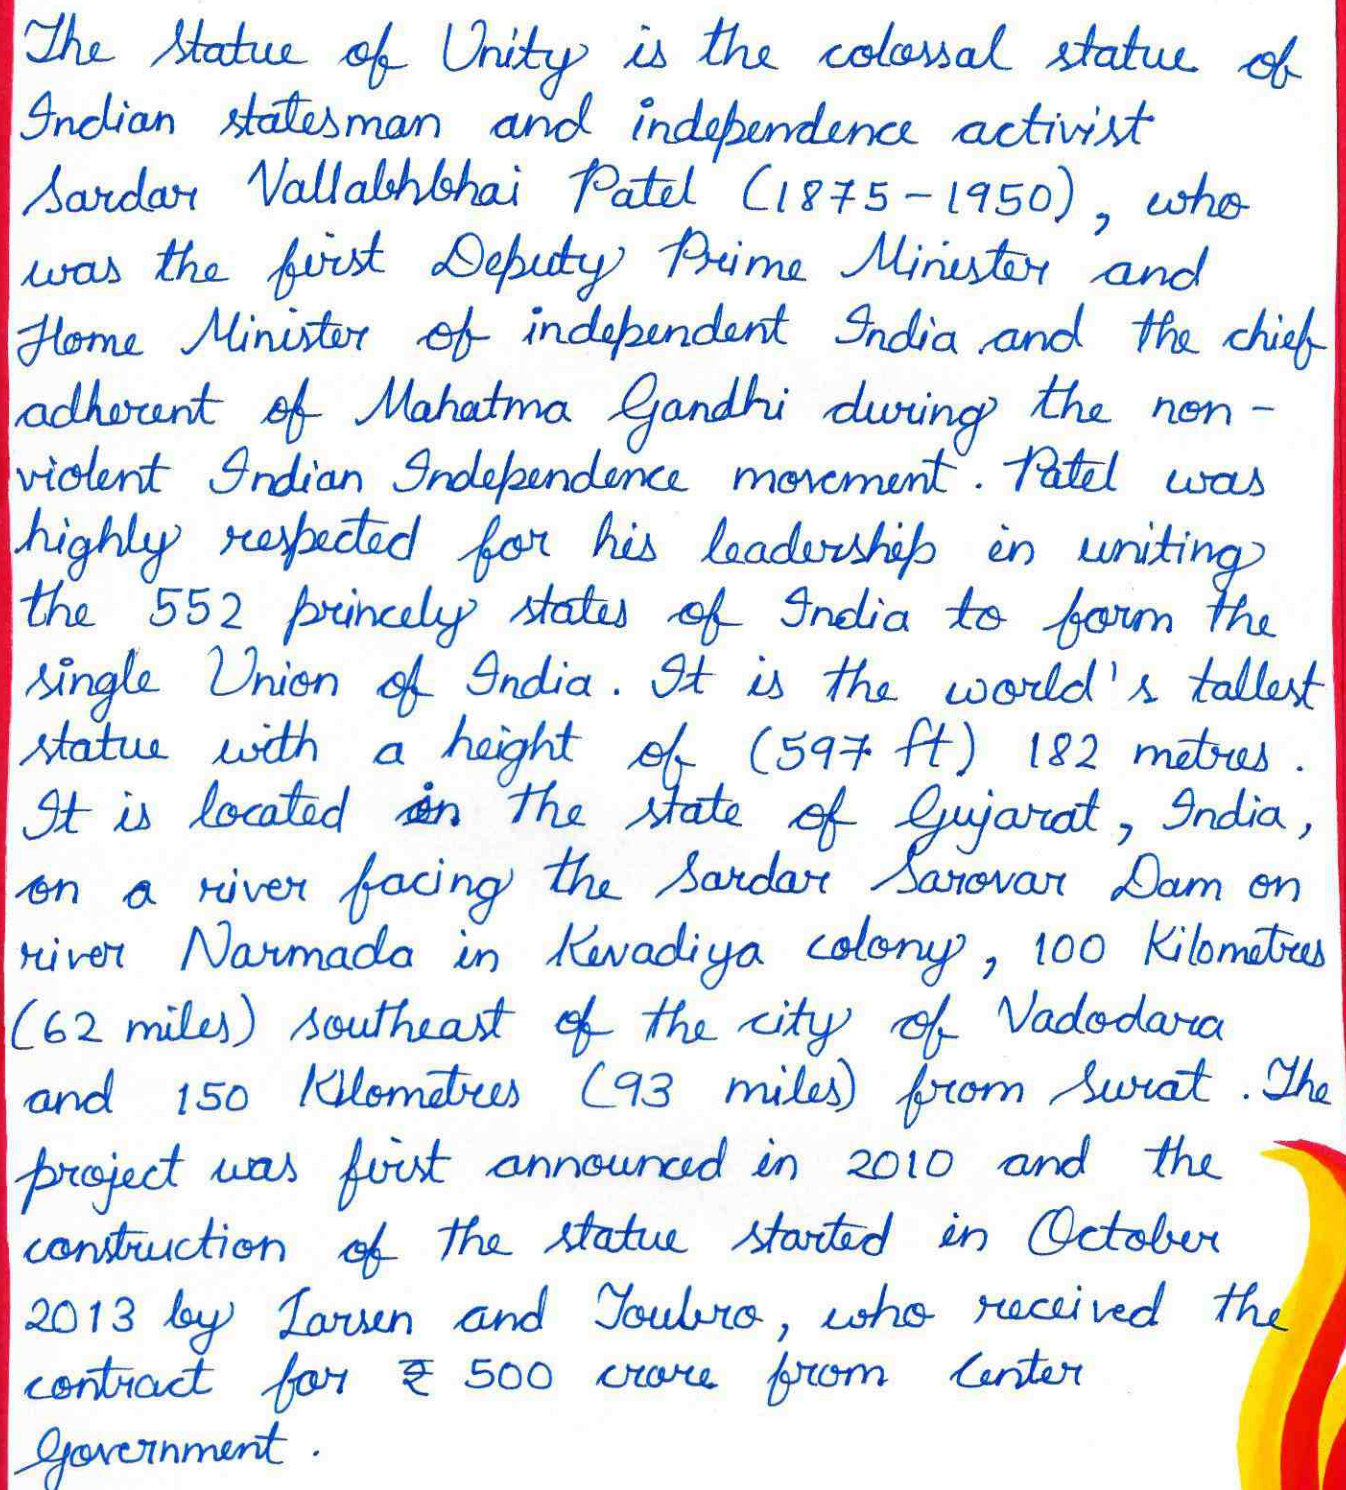 The Statue of Unity is the colossal statue of
Indian statesman and independence activist
Sardar Vallabhbhai Patel (1875-1950), who
was the first Deputy Prime Minister and
Home Minister of independent India and the chief
adherent of Mahatma Gandhi during the non-
violent Indian Independence movement. Patel was
highly respected for his leadership in uniting
the 552 princely states of India to form the
single Union of India. It is the world's tallest
statue with a height of (597 ft) 182 metres.
It is located in the state of Gujarat, India,
on a river facing the Sardar Sarovar Dam on
river Narmada in Kevadiya colony, 100 Kilometres
(62 miles) southeast of the city of Vadodara
and 150 Kilometres (93 miles) from Surat. The
project was first announced in 2010 and the
construction of the statue started in October
2013 by Larsen and Toubro, who received the
contract for ₹ 500 crore from Center
Government.